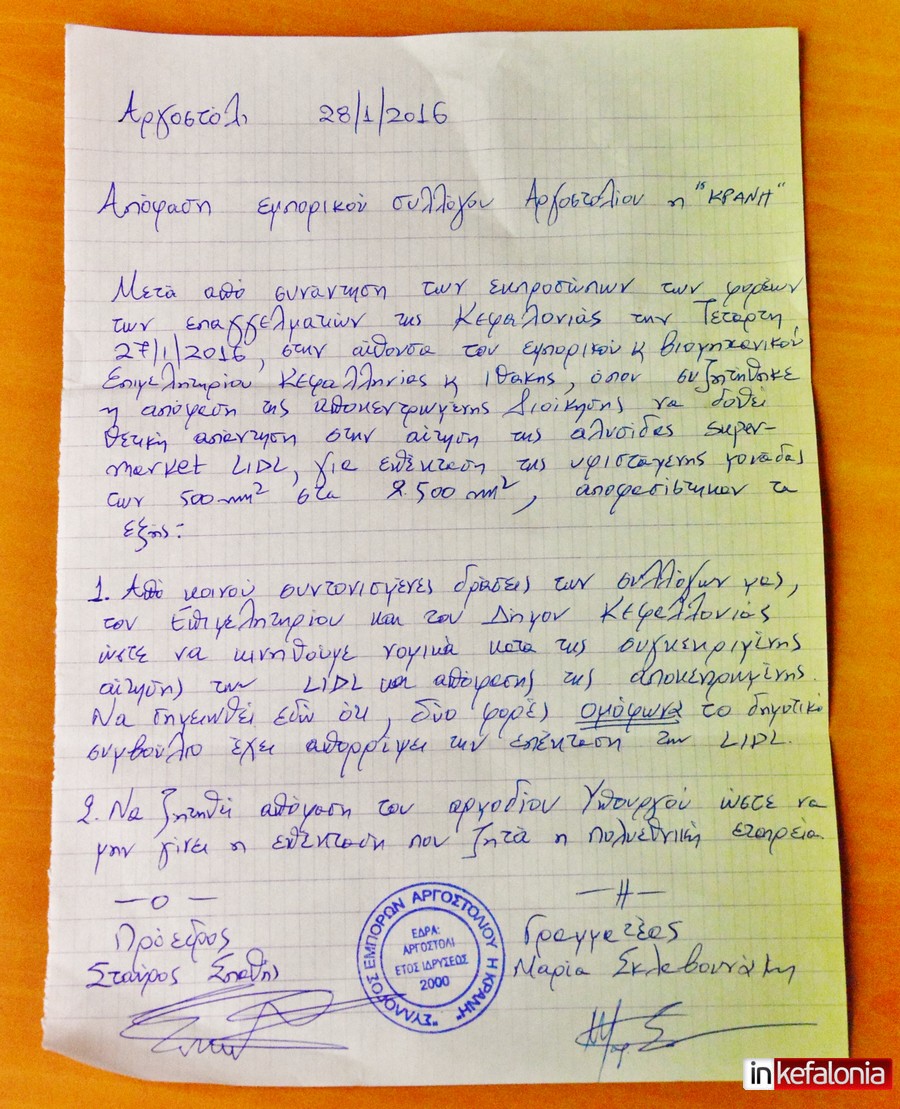 Αργοστόλι 28/1/2016
Απόφαση εμπορικού συλλόγου Αργοστολίου η "ΚΡΑΝΗ"
Μετά από συνάντηση των εκπροσώπων των φορέων
των επαγγελματιών της Κεφαλονιάς την Τετάρτη
27/1/2016, στην αίθουσα του εμπορικού κ βιομηχανικού
Επιμελητηρίου Κεφαλληνίας κ Ιθάκης, όπου συζητήθηκε
η απόφαση της αποκεντρωμένης Διοίκησης να δοθεί
θετική απάντηση στην αίτηση της αλυσίδας super-
market LIDL, για επέκταση της υφιστάμενης μονάδας
των 500 m² στα 2.500 m², αποφασίστηκαν τα
εξής:
1. Από κοινού συντονισμένες δράσεις των συλλόγων μας,
του Επιμελητηρίου και του Δήμου Κεφαλλονιάς
ώστε να κινηθούμε νομικά κατά της συγκεκριμένης
αίτησης των LIDL και απόφασης της αποκεντρωμένης.
Να σημειωθεί εδώ ότι, δύο φορές ομόφωνα το δημοτικό
συμβούλιο έχει απορρίψει την επέκταση των LIDL.
2. Να ζητηθεί απόφαση του αρμοδίου Υπουργού ώστε να
μην γίνει η επέκταση που ζητά η πολυεθνική εταιρεία.
— ο — — // —
Πρόεδρος Γραμματέας
Σταύρος Σπαθής Μαρία Σκλεβουνάκη
"ΣΥΛΛΟΓΟΣ ΕΜΠΟΡΩΝ ΑΡΓΟΣΤΟΛΙΟΥ Η ΚΡΑΝΗ"
ΕΔΡΑ:
ΑΡΓΟΣΤΟΛΙ
ΕΤΟΣ ΙΔΡΥΣΕΩΣ
2000
inkefalonia